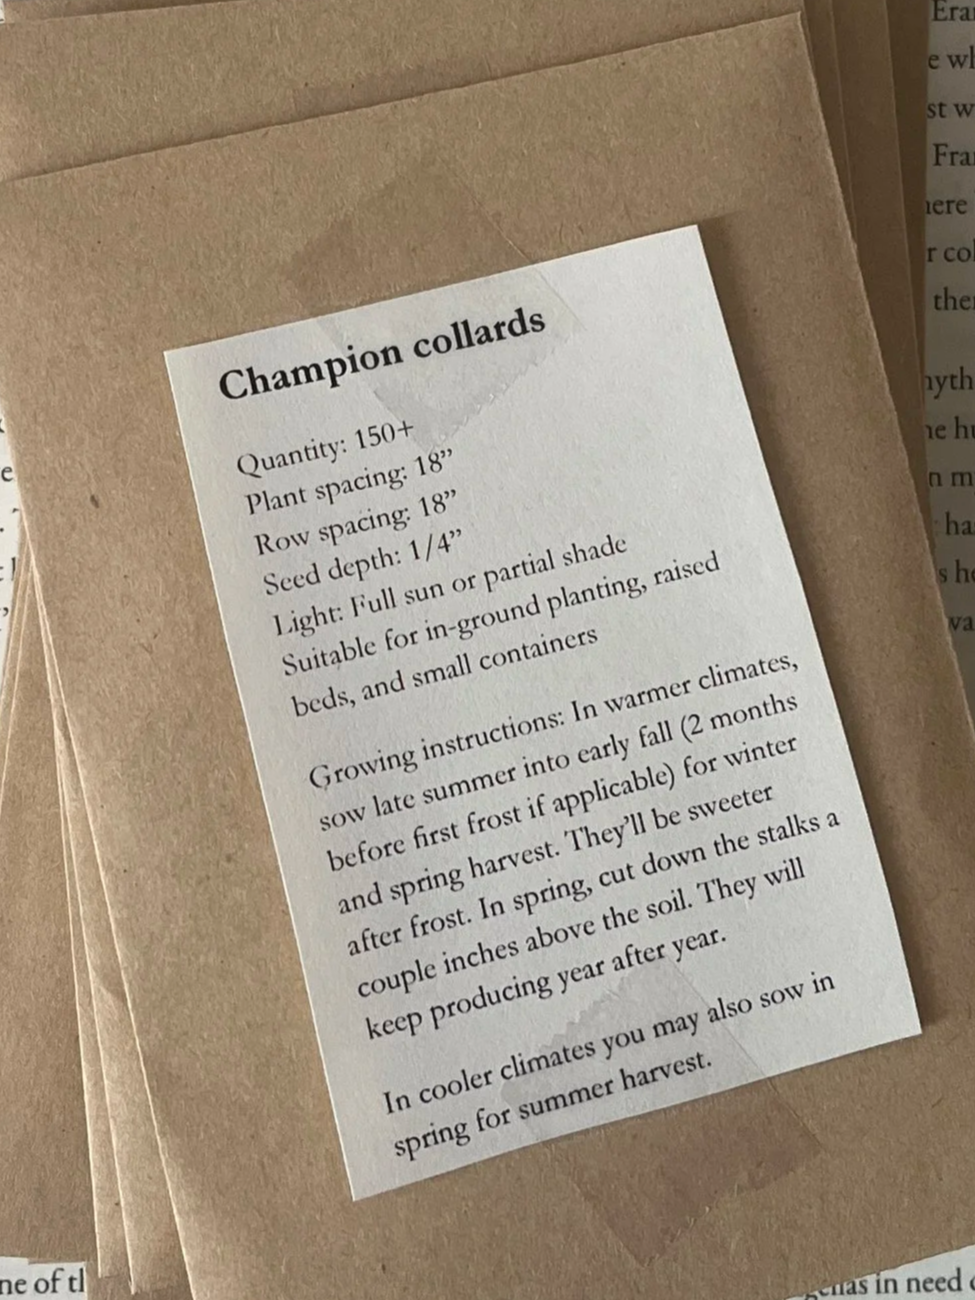 Champion collards
Quantity: 150+
Plant spacing: 18”
Row spacing: 18”
Seed depth: 1/4”
Light: Full sun or partial shade
Suitable for in-ground planting, raised
beds, and small containers
Growing instructions: In warmer climates,
sow late summer into early fall (2 months
before first frost if applicable) for winter
and spring harvest. They’ll be sweeter
after frost. In spring, cut down the stalks a
couple inches above the soil. They will
keep producing year after year.
In cooler climates you may also sow in
spring for summer harvest.
of
in need